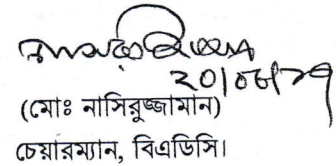 ২০/০৮/১৭
(মোঃ নাসিরুজ্জামান)
চেয়ারম্যান, বিএডিসি।